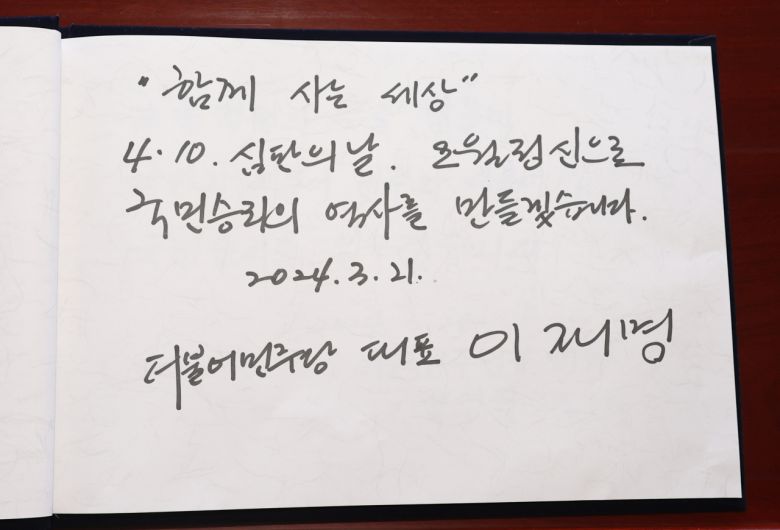 "함께 사는 세상"
4·10. 심판의 날. 오월정신으로
국민승리의 역사를 만들겠습니다.
2024. 3. 21.
더불어민주당 대표 이재명